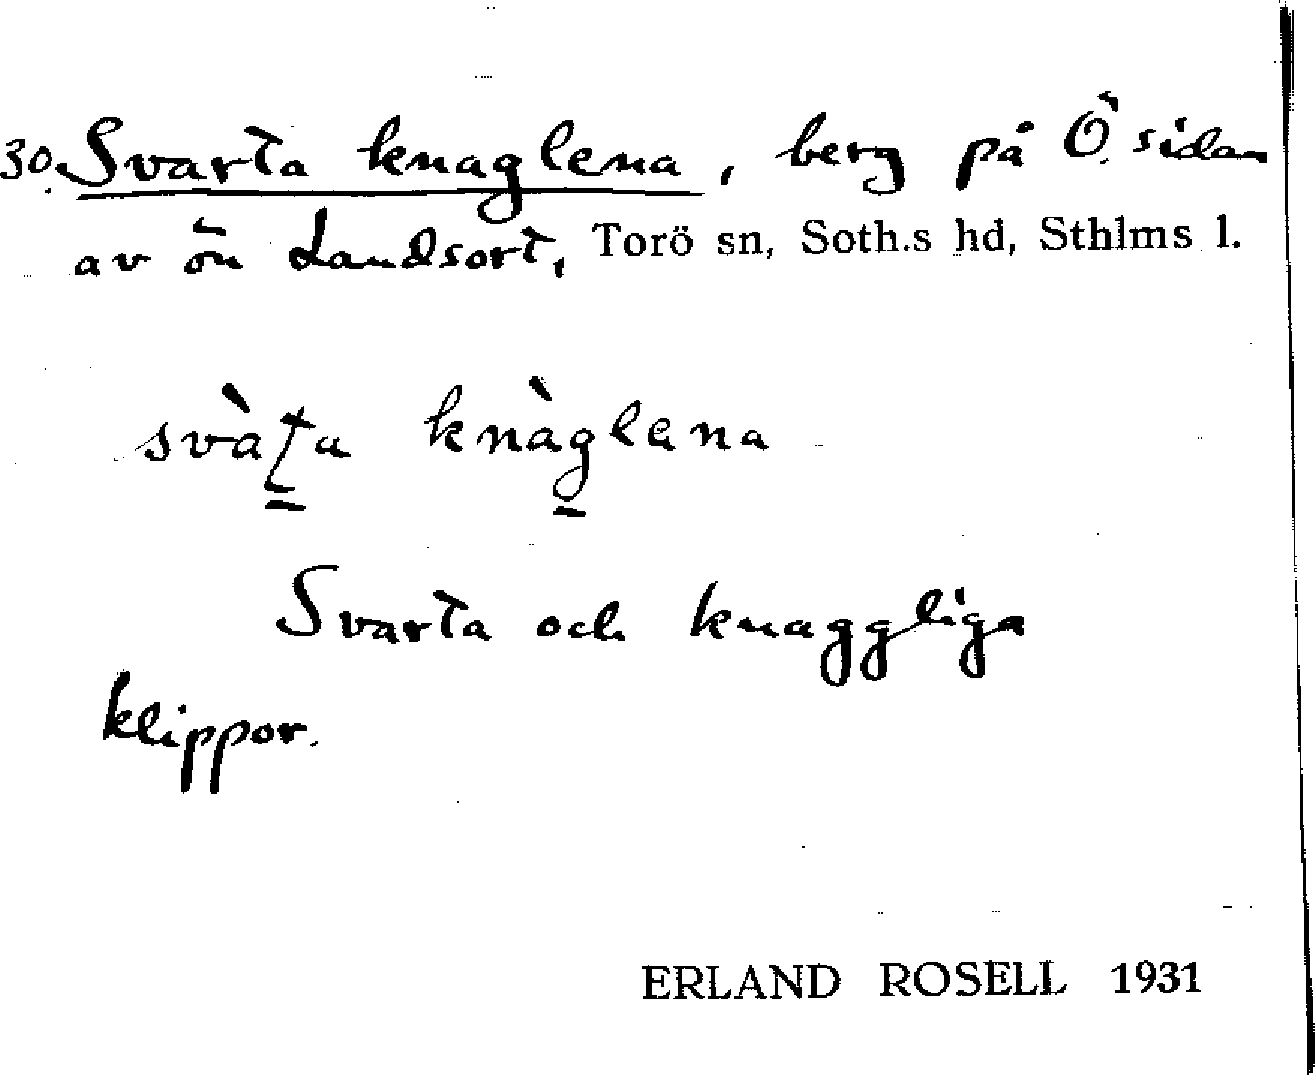 30. Svarta knaglena, berg på Ö. sidan
av ön Landsort, Torö sn, Soth.s hd, Sthlms l.
svàta knàglena
Svarta och knaggliga
klippor.
ERLAND ROSELL 1931